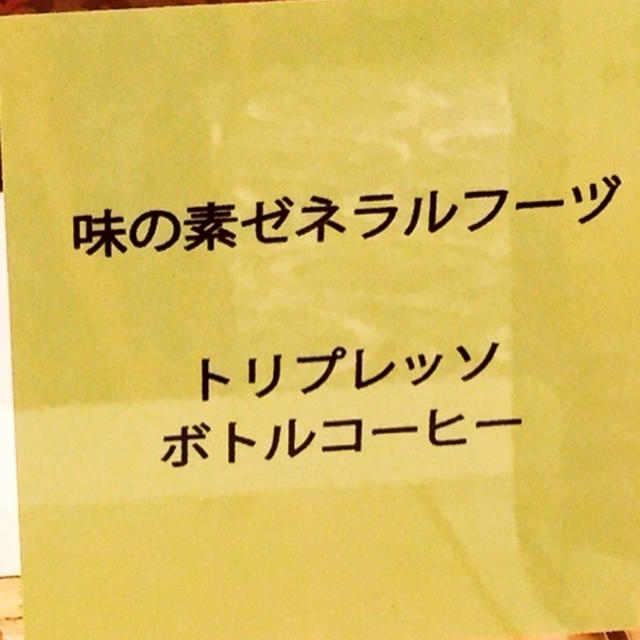 味の素ゼネラルフーヅ
トリプレッソ
ボトルコーヒー